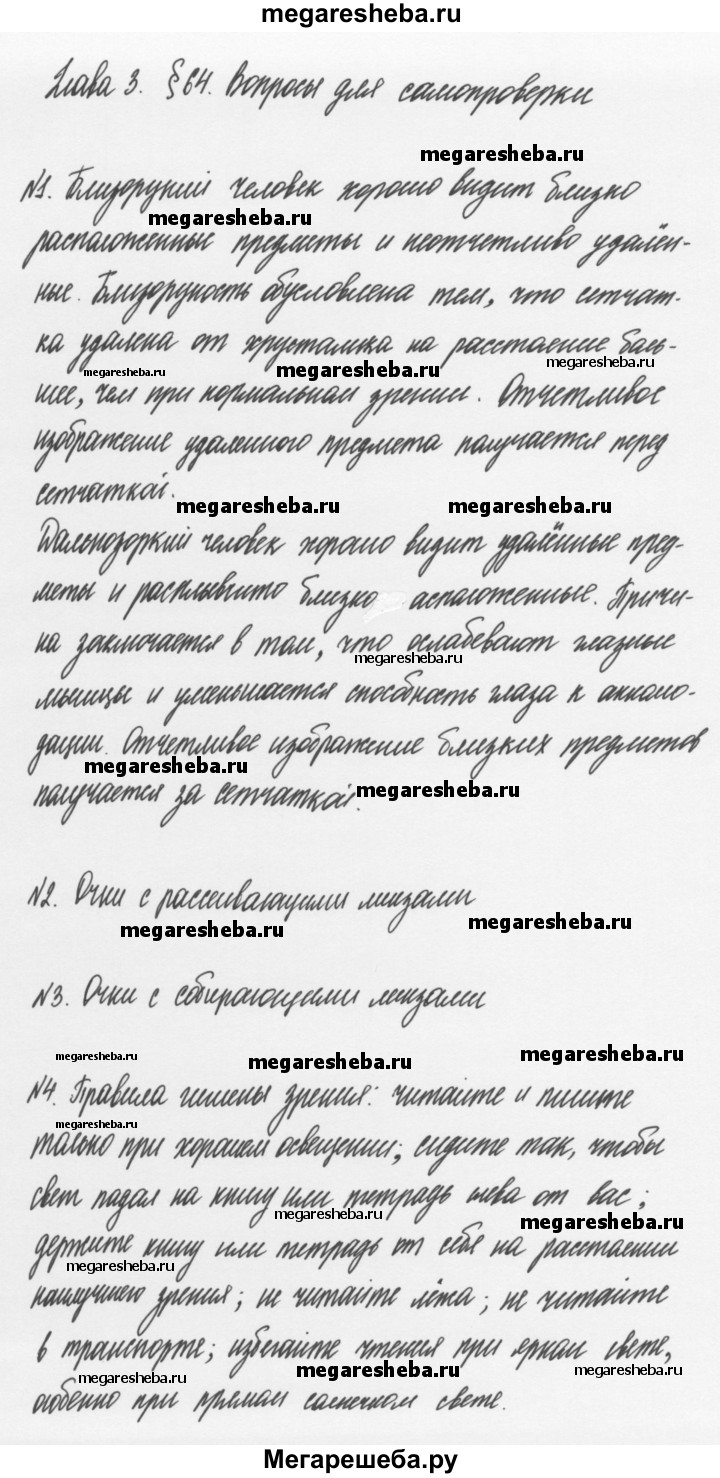 megaresheba.ru
Глава 3. §64. Вопросы для самопроверки
megaresheba.ru
№1. Близорукий человек хорошо видит близко
megaresheba.ru
расположенные предметы и неотчетливо удалён-
ные. Близорукость обусловлена тем, что сетчат-
ка удалена от хрусталика на расстояние боль-
megaresheba.ru megaresheba.ru megaresheba.ru
шее, чем при нормальном зрении. Отчетливое
изображение удаленного предмета получается перед
сетчаткой.
megaresheba.ru megaresheba.ru
Дальнозоркий человек хорошо видит удалённые пред-
меты и расплывчато близко асположенные. Причи-
на заключается в том, что ослабевают глазные
megaresheba.ru
мышцы и уменьшается способность глаза к аккомо-
дации. Отчетливое изображение близких предметов
megaresheba.ru
получается за сетчаткой.
megaresheba.ru
№2. Очки с рассеивающими линзами
megaresheba.ru megaresheba.ru
№3. Очки с собирающими линзами
megaresheba.ru megaresheba.ru megaresheba.ru
№4. Правила гигиены зрения: читайте и пишите
megaresheba.ru
только при хорошем освещении; сидите так, чтобы
свет падал на книгу или тетрадь слева от вас;
megaresheba.ru megaresheba.ru
держите книгу или тетрадь от себя на расстоянии
megaresheba.ru
наилучшего зрения; не читайте лёжа; не читайте
в транспорте; избегайте чтения при ярком свете,
megaresheba.ru megaresheba.ru megaresheba.ru
особенно при прямом солнечном свете.
Мегарешеба.ру